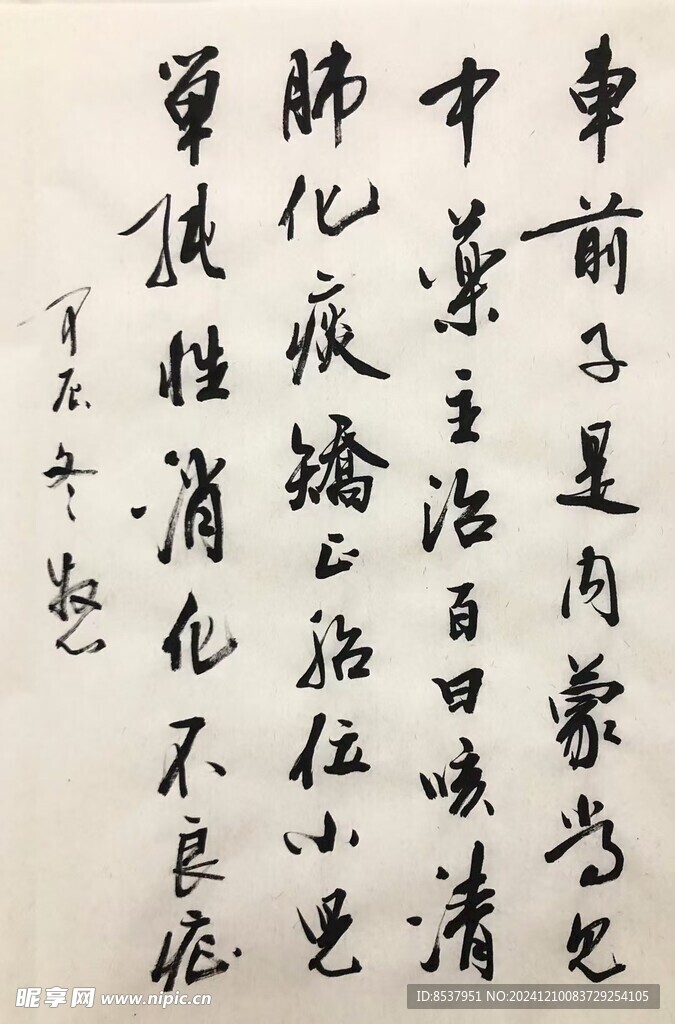 車前子是内蒙常见
中藥主治百日咳清
肺化痰矯正胎位小兒
單純性消化不良症
甲辰冬
昵享网 www.nipic.cn
ID:8537951 NO:20241210083729254105